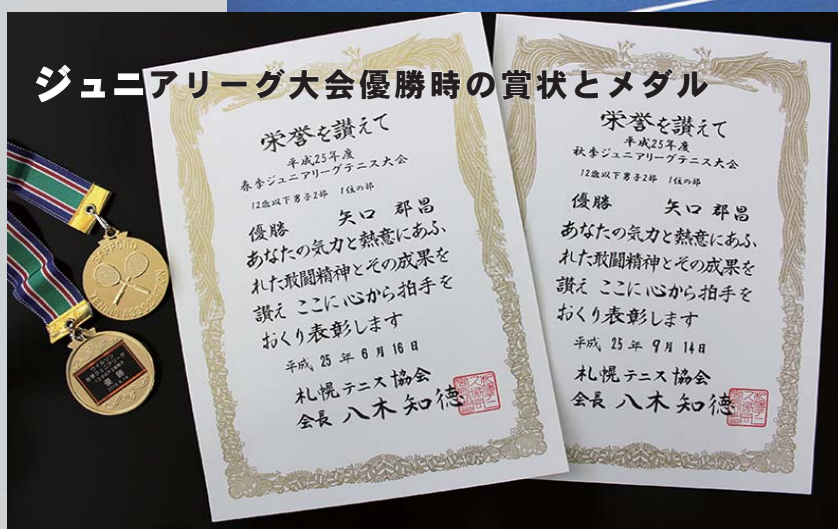 ジュニアリーグ大会優勝時の賞状とメダル
栄誉を讃えて
平成25年度
春季ジュニアリーグテニス大会
12歳以下男子2部 1位の部
優勝 矢口 郡昌
あなたの気力と熱意にあふ
れた敢闘精神とその成果を
讃え ここに心から拍手を
おくり表彰します
平成 25 年 6 月 16 日
札幌テニス協会
会長 八木知徳
栄誉を讃えて
平成25年度
秋季ジュニアリーグテニス大会
12歳以下男子2部 1位の部
優勝 矢口 郡昌
あなたの気力と熱意にあふ
れた敢闘精神とその成果を
讃え ここに心から拍手を
おくり表彰します
平成 25 年 9 月 14 日
札幌テニス協会
会長 八木知徳
SAPPORO
TENNIS ASSOCIATION
ウィルソン
秋季ジュニアリーグ
優勝